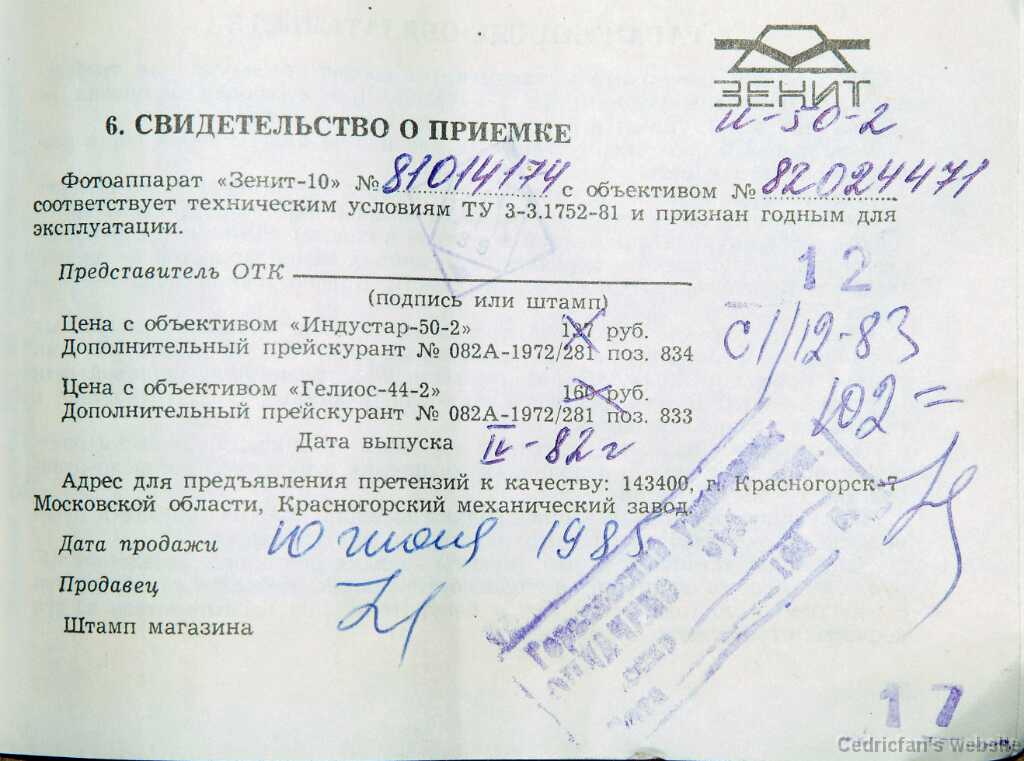 ЗЕНИТ
И-50-2
6. СВИДЕТЕЛЬСТВО О ПРИЕМКЕ
Фотоаппарат «Зенит-10» № 81014174 с объективом № 82024471
соответствует техническим условиям ТУ 3-3.1752-81 и признан годным для
эксплуатации.
12
Представитель ОТК
(подпись или штамп)
Цена с объективом «Индустар-50-2» 127 руб.
Дополнительный прейскурант № 082А-1972/281 поз. 834
С 1/12-83
Цена с объективом «Гелиос-44-2» 160 руб.
102=
Дополнительный прейскурант № 082А-1972/281 поз. 833
Дата выпуска IV-82 г
Адрес для предъявления претензий к качеству: 143400, г. Красногорск-7
Московской области, Красногорский механический завод.
Дата продажи 10 июля 1985
Продавец
Штамп магазина
17
Cedricfan's website